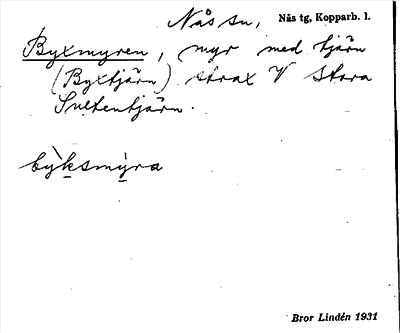 Nås sn, Nås tg, Kopparb. l.
Byxmyren, myr med tjärn
(Byxtjärn) strax V Stora
Sultentjärn.
by̌ksmy̌ra
Bror Lindén 1931